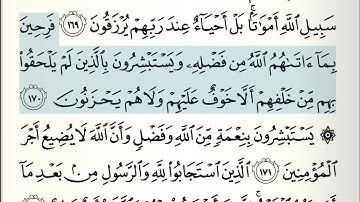 سَبِيلِ ٱللَّهِ أَمْوَٰتًۢا ۚ بَلْ أَحْيَآءٌ عِندَ رَبِّهِمْ يُرْزَقُونَ ١٦٩ فَرِحِينَ
بِمَآ ءَاتَىٰهُمُ ٱللَّهُ مِن فَضْلِهِۦ وَيَسْتَبْشِرُونَ بِٱلَّذِينَ لَمْ يَلْحَقُوا۟
بِهِم مِّنْ خَلْفِهِمْ أَلَّا خَوْفٌ عَلَيْهِمْ وَلَا هُمْ يَحْزَنُونَ ١٧٠
۞ يَسْتَبْشِرُونَ بِنِعْمَةٍ مِّنَ ٱللَّهِ وَفَضْلٍ وَأَنَّ ٱللَّهَ لَا يُضِيعُ أَجْرَ
ٱلْمُؤْمِنِينَ ١٧١ ٱلَّذِينَ ٱسْتَجَابُوا۟ لِلَّهِ وَٱلرَّسُولِ مِنۢ بَعْدِ مَآ